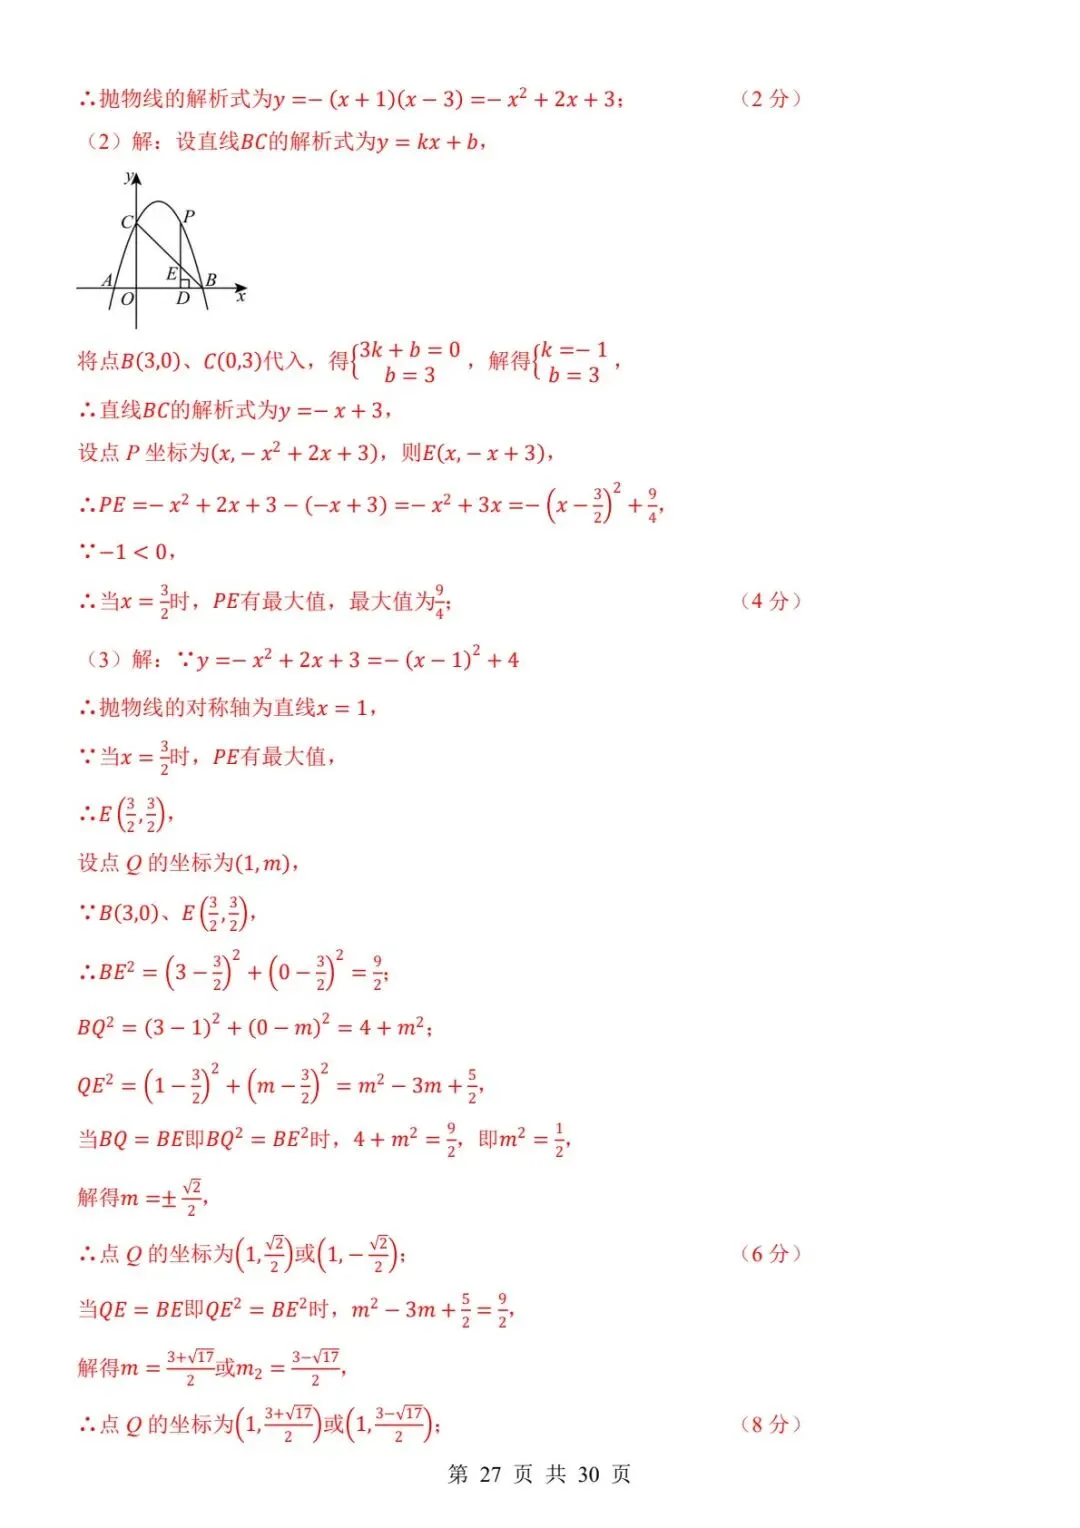 ∴抛物线的解析式为y =− (x + 1)(x − 3) =− x² + 2x + 3; （2 分）
（2）解：设直线BC的解析式为y = kx + b，
y
C
P
E
A
B
O
D
x
将点B(3,0)、C(0,3)代入，得{3k + b = 0, b = 3，解得{k =− 1, b = 3，
∴直线BC的解析式为y =− x + 3，
设点 P 坐标为(x, − x² + 2x + 3)，则E(x, − x + 3)，
∴PE =− x² + 2x + 3 − (−x + 3) =− x² + 3x =− (x − 3/2)² + 9/4，
∵−1 < 0，
∴当x = 3/2时，PE有最大值，最大值为9/4; （4 分）
（3）解：∵y =− x² + 2x + 3 =− (x − 1)² + 4
∴抛物线的对称轴为直线x = 1，
∵当x = 3/2时，PE有最大值，
∴E(3/2, 3/2)，
设点 Q 的坐标为(1, m)，
∵B(3,0)、E(3/2, 3/2)，
∴BE² = (3 − 3/2)² + (0 − 3/2)² = 9/2;
BQ² = (3 − 1)² + (0 − m)² = 4 + m²;
QE² = (1 − 3/2)² + (m − 3/2)² = m² − 3m + 5/2，
当BQ = BE即BQ² = BE²时，4 + m² = 9/2，即m² = 1/2，
解得m =± √2/2，
∴点 Q 的坐标为(1, √2/2)或(1, − √2/2); （6 分）
当QE = BE即QE² = BE²时，m² − 3m + 5/2 = 9/2，
解得m = (3+√17)/2或m₂ = (3−√17)/2，
∴点 Q 的坐标为(1, (3+√17)/2)或(1, (3−√17)/2); （8 分）
第 27 页 共 30 页